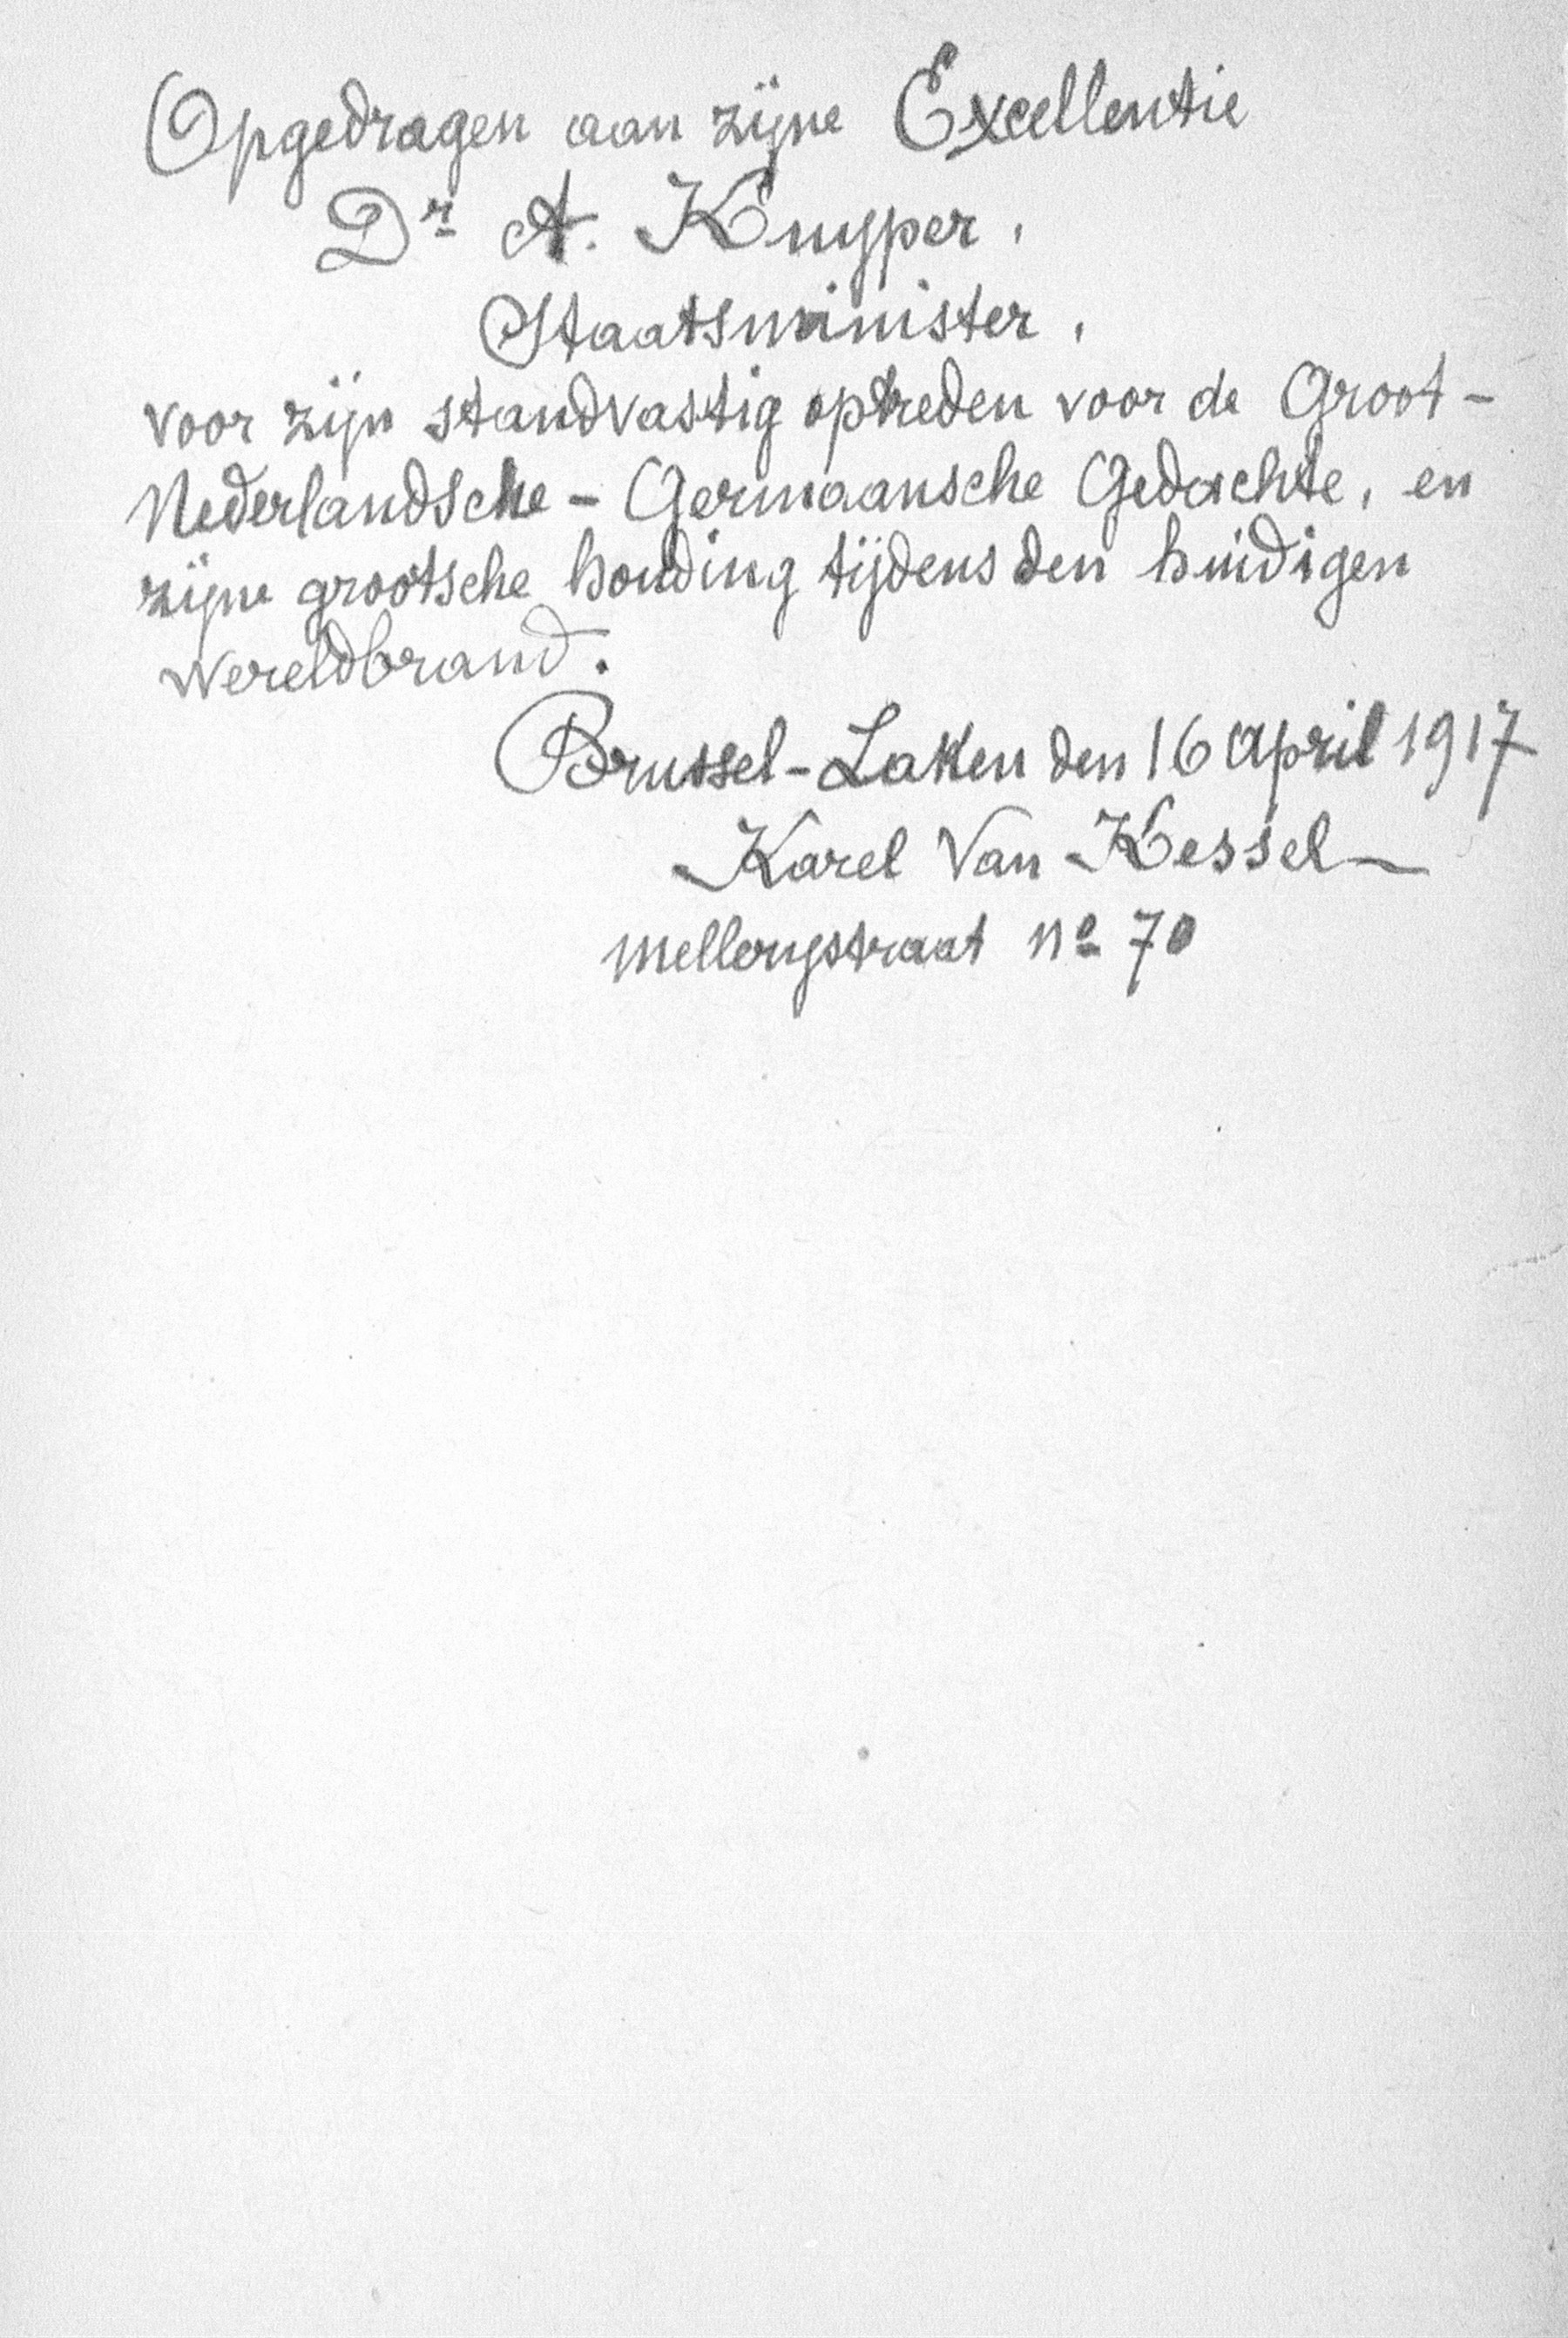 Opgedragen aan zijne Excellentie
Dr A. Kuyper,
Staatsminister,
voor zijn standvastig optreden voor de Groot-
Nederlandsche - Germaansche Gedachte, en
zijne grootsche houding tijdens den huidigen
wereldbrand.
Brussel-Laken den 16 april 1917
Karel Van Kessel
Mellerystraat no 70